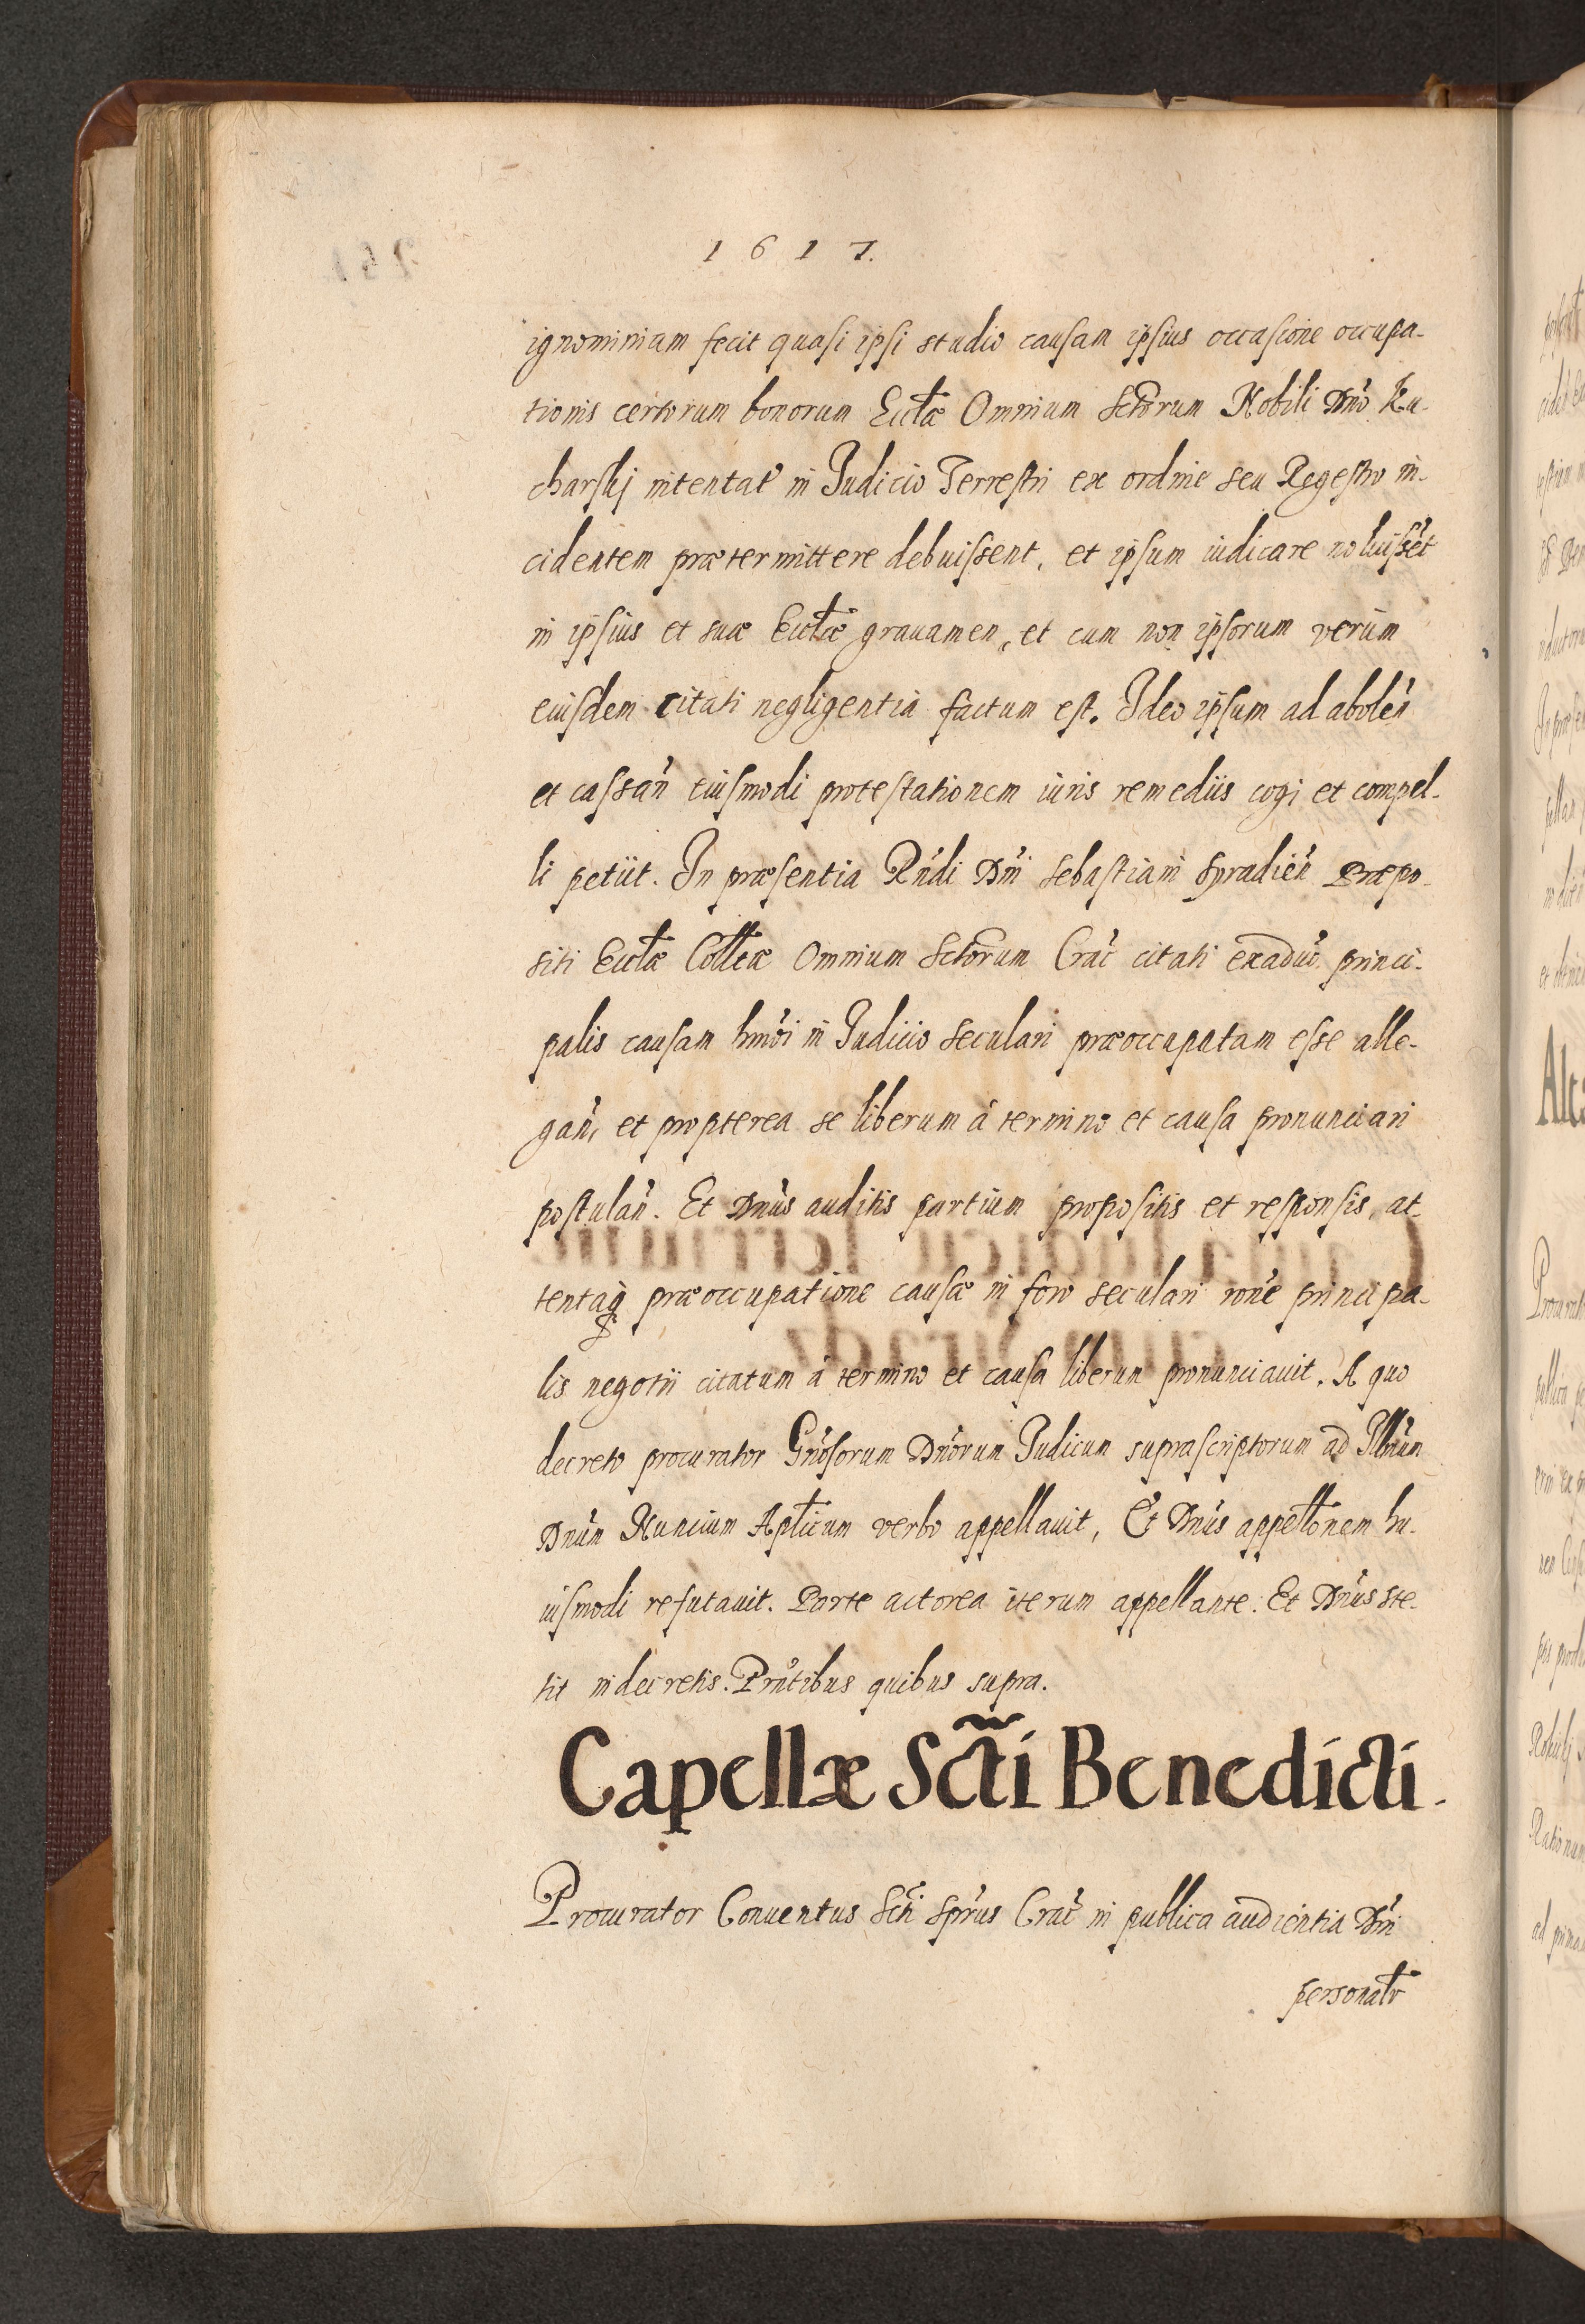 1617.
ignominiam fecit quasi ipsi studio causam ipsius occasione occupa-
tionis certorum bonorum Ecctæ Omnium Sctorum Nobili Dno Ku-
charskj intentat in Judicio Terrestri ex ordine seu Regestro in-
cidentem prætermittere debuissent, et ipsum iudicare noluisset
in ipsius et suæ Ecctæ gravamen, et cum non ipsorum verum
eiusdem citati negligentia factum est. Ideo ipsum ad abolen
et cassan eiusmodi protestationem iuris remediis cogi et compel-
li petiit. In præsentia Rndi Dni Sebastiani Syradien Præpo-
siti Ecctæ Colltæ Omnium Sctorum Crac citati ex aduo princi-
palis causam hmoi in Judicio seculari præoccupatam esse alle-
gan, et propterea se liberum à termino et causa pronunciari
postulan. Et Dnus auditis partium propositis et responsis, at-
tentaq præoccupatione causæ in foro seculari rone principa-
lis negotii citatum à termino et causa liberum pronunciauit. A quo
decreto procurator Gnosorum Dnorum Judicum suprascriptorum ad Illmum
Dnum Nuncium Aptlicum verbo appellauit, Et Dnus appeltonem hu-
iusmodi refutauit. Parte actorea iterum appellante. Et Dnus ste-
tit in decretis. Prntibus quibus supra.
Capellæ Scti Benedicti.
Procurator Conuentus Scti Sprius Crac in publica audientia Dni
personatr